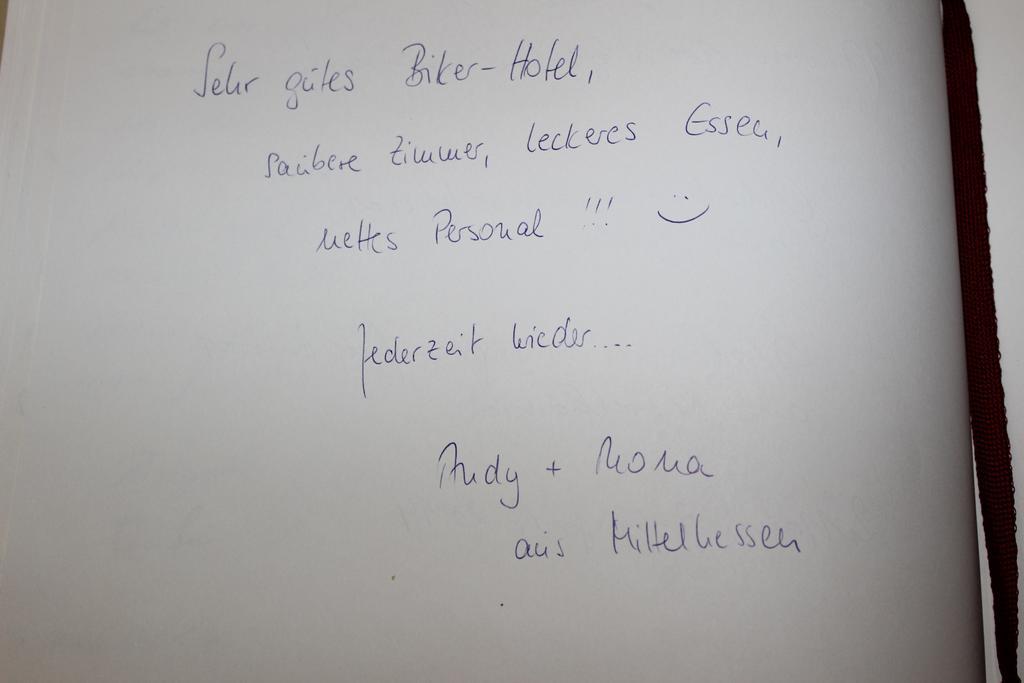 Sehr gutes Biker-Hotel,
saubere Zimmer, leckeres Essen,
nettes Personal !!! :)
Jederzeit wieder....
Andy + Mona
aus Mittelhessen